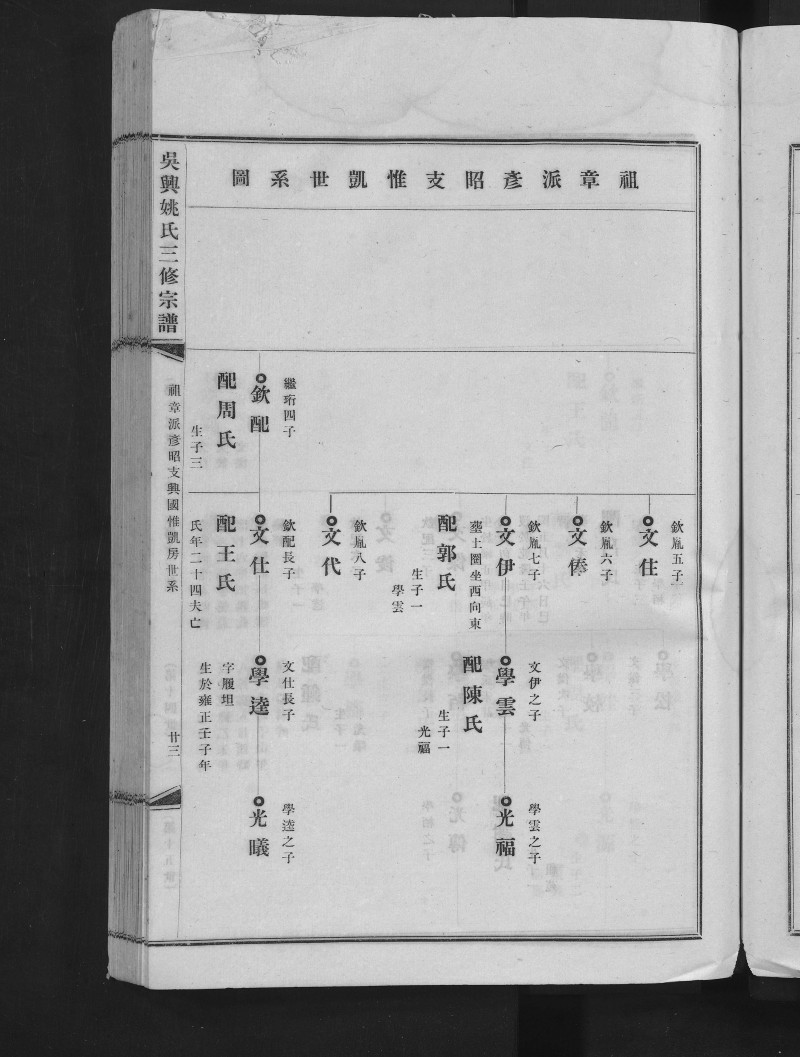 祖章派彥昭支惟凱世系圖
欽胤五子
文住
欽胤六子
文俸
欽胤七子
文伊
塟土圈坐西向東
配郭氏
生子一
學雲
欽胤八子
文代
繼珩四子
欽配
配周氏
生子三
欽配長子
文仕
配王氏
氏年二十四夫亡
文伊之子
學雲
配陳氏
生子一
光福
文仕長子
學逵
字履坦
生於雍正壬子年
學雲之子
光福
學逵之子
光曦
吳興姚氏三修宗譜
祖章派彥昭支興國惟凱房世系
廿三